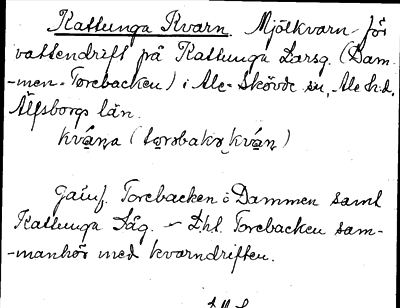 Kattunga Kvarn. Mjölkvarn för
vattendrift på Kattunga Larsg. (Dam-
-men-Torebacken) i Ale-Skövde sn, Ale hd.
Älfsborgs län.
kvána (torabakv kván)
Jämf. Torebacken o Dammen samt
Kattunga Såg. – D:hl. Torebacken sam-
-manhör med kvarndriften.